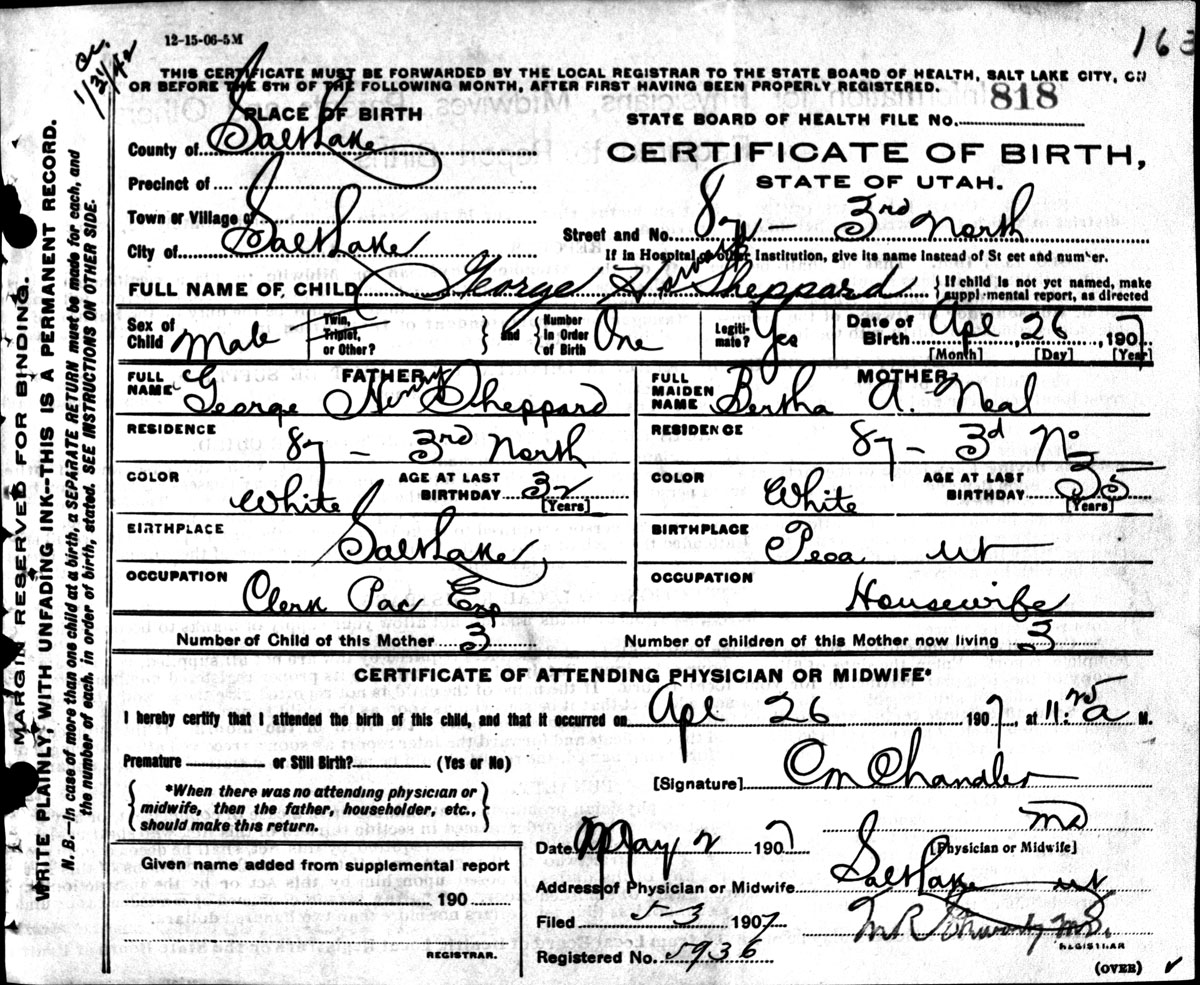 12-15-06-5M
163
1/31/42
THIS CERTIFICATE MUST BE FORWARDED BY THE LOCAL REGISTRAR TO THE STATE BOARD OF HEALTH, SALT LAKE CITY, ON
OR BEFORE THE 5TH OF THE FOLLOWING MONTH, AFTER FIRST HAVING BEEN PROPERLY REGISTERED.
818
PLACE OF BIRTH
STATE BOARD OF HEALTH FILE NO.
County of Salt Lake
CERTIFICATE OF BIRTH,
Precinct of
STATE OF UTAH.
Town or Village of
Street and No. 87 - 3rd North
City of Salt Lake
If in Hospital or other Institution, give its name instead of Street and number.
FULL NAME OF CHILD George Sheppard
If child is not yet named, make supplemental report, as directed
Sex of Child Male
Twin, Triplet, or Other?
and
Number in Order of Birth One
Legitimate? Yes
Date of Birth Apl 26, 1907
[Month] [Day] [Year]
FATHER
FULL NAME George Henry Sheppard
RESIDENCE 87 - 3rd North
COLOR White
AGE AT LAST BIRTHDAY 32
[Years]
BIRTHPLACE Salt Lake
OCCUPATION Clerk Pac Exp
MOTHER
FULL MAIDEN NAME Bertha A. Neal
RESIDENCE 87 - 3d No
COLOR White
AGE AT LAST BIRTHDAY 35
[Years]
BIRTHPLACE Peoa ut
OCCUPATION Housewife
Number of Child of this Mother 3
Number of children of this Mother now living 3
CERTIFICATE OF ATTENDING PHYSICIAN OR MIDWIFE*
I hereby certify that I attended the birth of this child, and that it occurred on Apl 26 1907, at 11: a M.
Premature or Still Birth? (Yes or No)
[Signature] CM Chandler
*When there was no attending physician or
midwife, then the father, householder, etc.,
should make this return.
MD
Date May 2 1907
[Physician or Midwife]
Given name added from supplemental report
190
REGISTRAR.
Address of Physician or Midwife Salt Lake ut
Filed 5-3 1907
REGISTRAR
Registered No. 5936
(OVER)
MARGIN RESERVED FOR BINDING.
WRITE PLAINLY, WITH UNFADING INK--THIS IS A PERMANENT RECORD.
N. B.—In case of more than one child at a birth, a SEPARATE RETURN must be made for each, and
the number of each, in order of birth, stated. SEE INSTRUCTIONS ON OTHER SIDE.